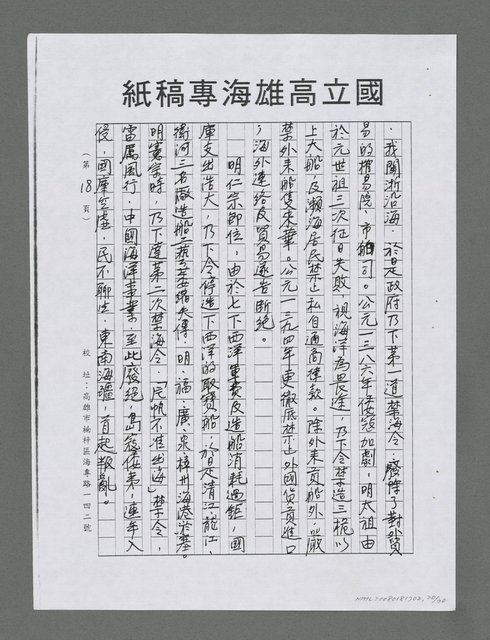 國立高雄海專稿紙
，我閩浙沿海，於是政府乃下第一道禁海令，廢除了對外貿
易的榷易院，市舶司。公元一三八六年倭寇加劇，明太祖由
於元世祖三次征日失敗，視海洋為畏途，乃下令禁造三桅以
上大船，及瀕海居民禁止私自通商條款。除外來貢船外，嚴
禁外來船隻來華。公元一三九四年更徹底禁止外國貨貢進口
，海外連絡及貿易遂告斷絕。
明仁宗即位，由於七下西洋軍費及造船消耗過鉅，國
庫支出浩大，乃下令停造下西洋的取寶船，於是清江龍江，
衛河三名廠造船工藝
失傳。明，福，廣，泉，漳州海港淤塞。
明憲宗時，乃下達第二次禁海令，「片帆不准出海」禁令，
雷厲風行，中國海洋事業，至此廢絕，島寇倭弟，連年入
侵，國庫空虛，民不聊生，東南海疆，首起叛亂。
（第 18 頁）
校 址：高雄市楠梓區海專路一四二號
NMTL20080181702, 20/30